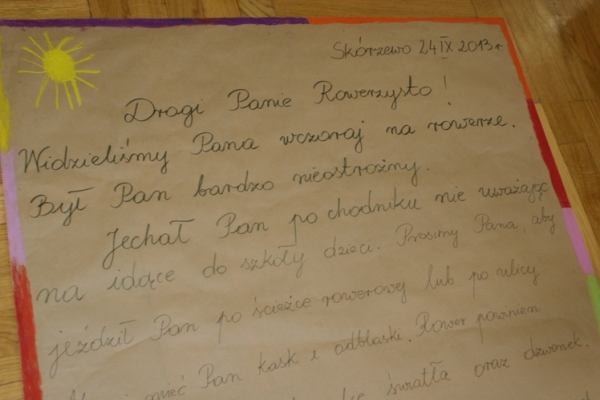 Skórzewo 24 IX 2013r
Drogi Panie Rowerzysto!
Widzieliśmy Pana wczoraj na rowerze.
Był Pan bardzo nieostrożny.
Jechał Pan po chodniku nie uważając
na idące do szkoły dzieci. Prosimy Pana, aby
jeździł Pan po ścieżce rowerowej lub po ulicy
mieć Pan kask i odblaski. Rower powinien
światła oraz dzwonek.